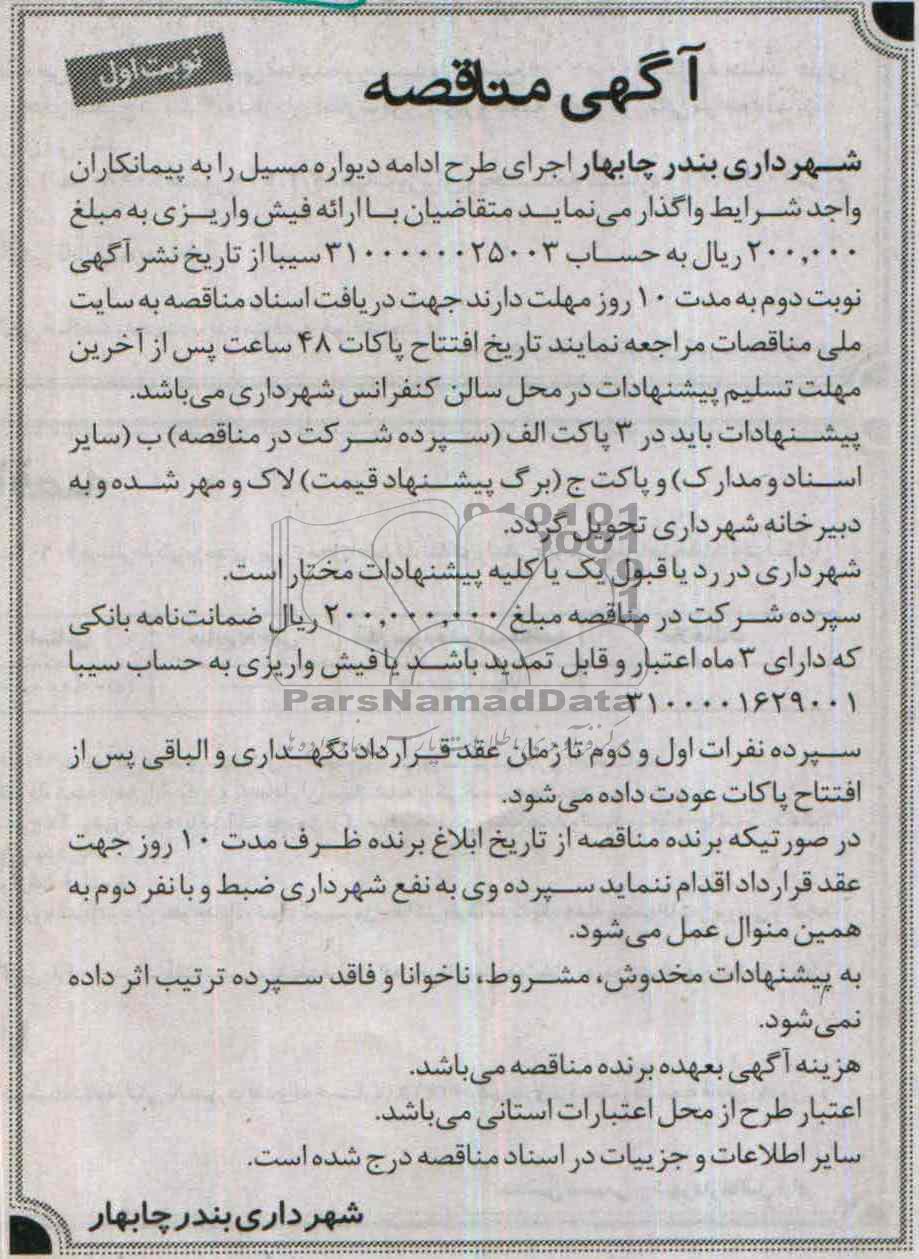 نوبت اول
آگهی مناقصه
شهرداری بندر چابهار اجرای طرح ادامه دیواره مسیل را به پیمانکاران
واجد شرایط واگذار می‌نماید متقاضیان با ارائه فیش واریزی به مبلغ
۲۰۰,۰۰۰ ریال به حساب ۳۱۰۰۰۰۰۰۲۵۰۰۳ سیبا از تاریخ نشر آگهی
نوبت دوم به مدت ۱۰ روز مهلت دارند جهت دریافت اسناد مناقصه به سایت
ملی مناقصات مراجعه نمایند تاریخ افتتاح پاکات ۴۸ ساعت پس از آخرین
مهلت تسلیم پیشنهادات در محل سالن کنفرانس شهرداری می‌باشد.
پیشنهادات باید در ۳ پاکت الف (سپرده شرکت در مناقصه) ب (سایر
اسناد و مدارک) و پاکت ج (برگ پیشنهاد قیمت) لاک و مهر شده و به
دبیرخانه شهرداری تحویل گردد.
شهرداری در رد یا قبول یک یا کلیه پیشنهادات مختار است.
سپرده شرکت در مناقصه مبلغ ۲۰۰,۰۰۰,۰۰۰ ریال ضمانت‌نامه بانکی
که دارای ۳ ماه اعتبار و قابل تمدید باشد یا فیش واریزی به حساب سیبا
۳۱۰۰۰۰۱۶۲۹۰۰۱
ParsNamadData
سپرده نفرات اول و دوم تا زمان عقد قرارداد نگهداری و الباقی پس از
افتتاح پاکات عودت داده می‌شود.
در صورتیکه برنده مناقصه از تاریخ ابلاغ برنده ظرف مدت ۱۰ روز جهت
عقد قرارداد اقدام ننماید سپرده وی به نفع شهرداری ضبط و با نفر دوم به
همین منوال عمل می‌شود.
به پیشنهادات مخدوش، مشروط، ناخوانا و فاقد سپرده ترتیب اثر داده
نمی‌شود.
هزینه آگهی بعهده برنده مناقصه می‌باشد.
اعتبار طرح از محل اعتبارات استانی می‌باشد.
سایر اطلاعات و جزییات در اسناد مناقصه درج شده است.
شهرداری بندر چابهار